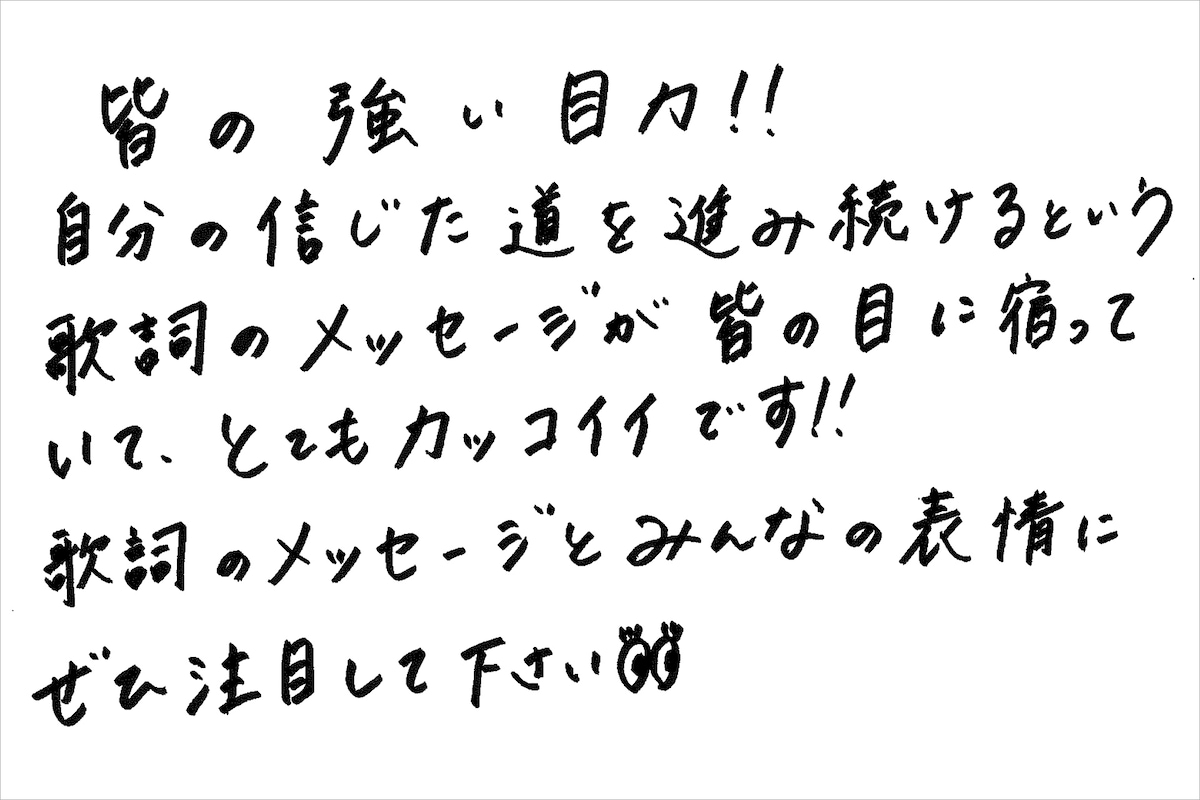 皆の強い目力!!
自分の信じた道を進み続けるという
歌詞のメッセージが皆の目に宿って
いて、とてもカッコイイです!!
歌詞のメッセージとみんなの表情に
ぜひ注目して下さい